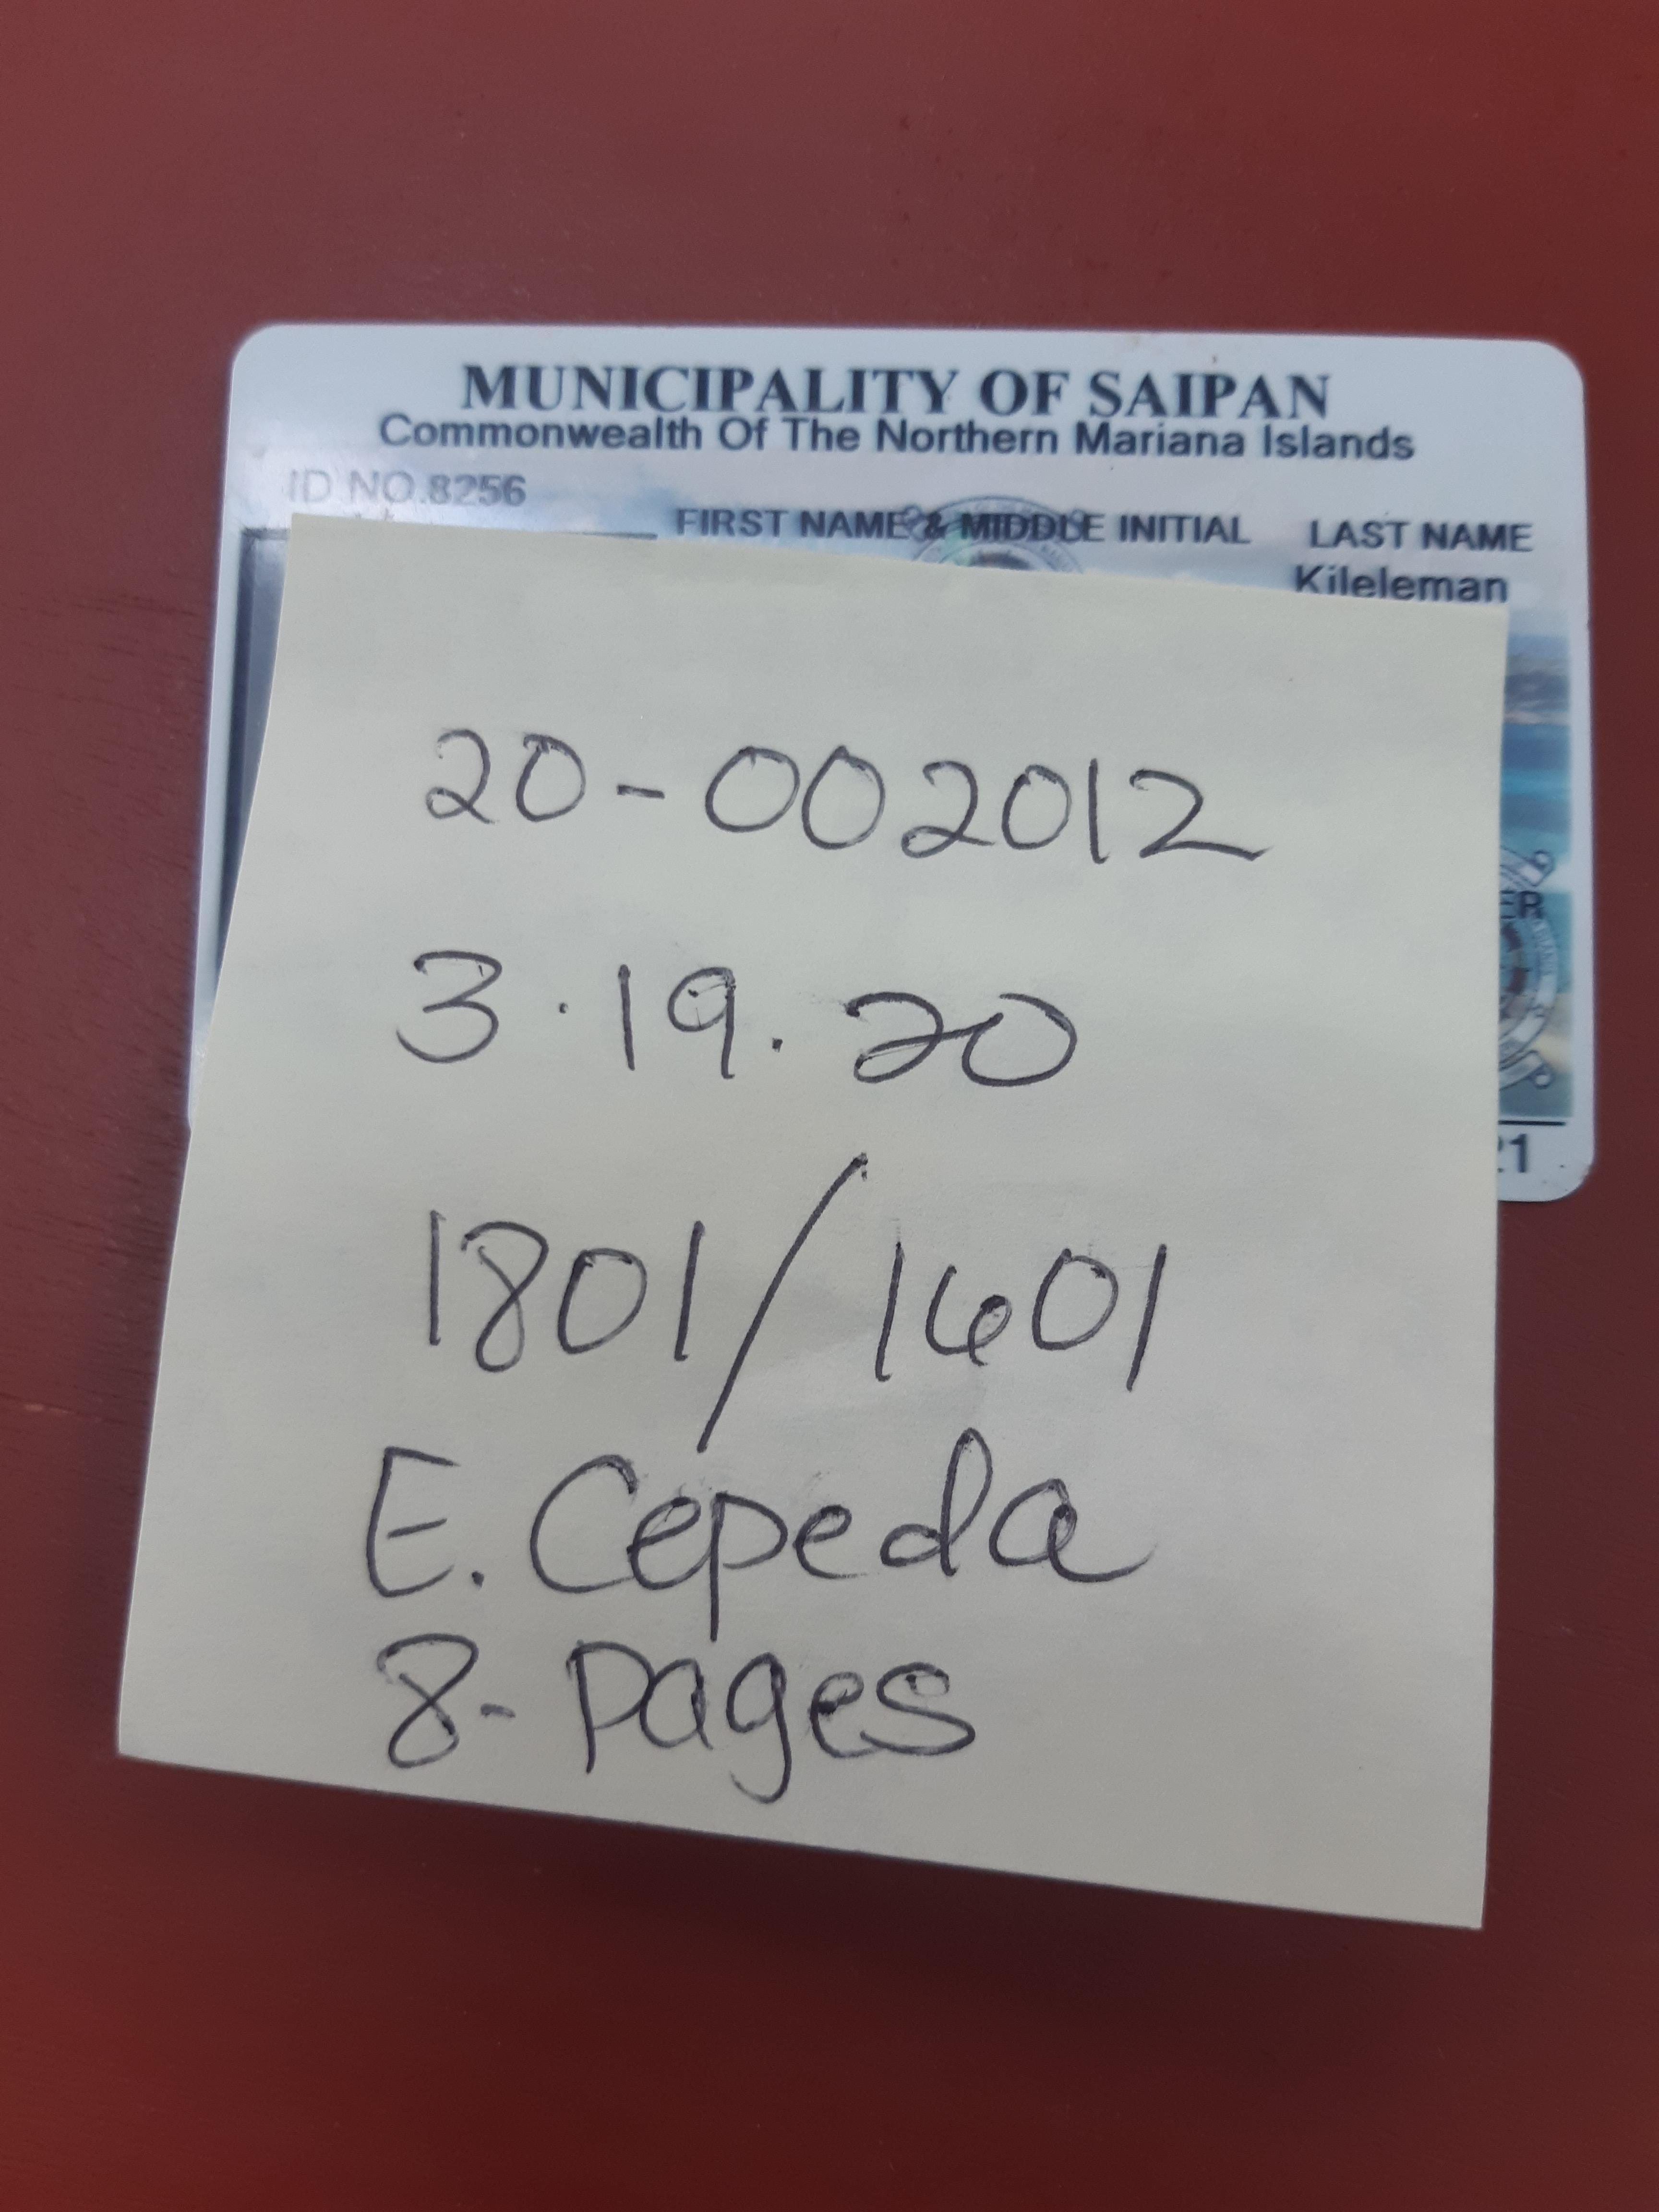 MUNICIPALITY OF SAIPAN
Commonwealth Of The Northern Mariana Islands
ID NO.8256
FIRST NAME & MIDDLE INITIAL LAST NAME
Kileleman
20-002012
3.19.20
1801/1601
E. Cepeda
8- Pages